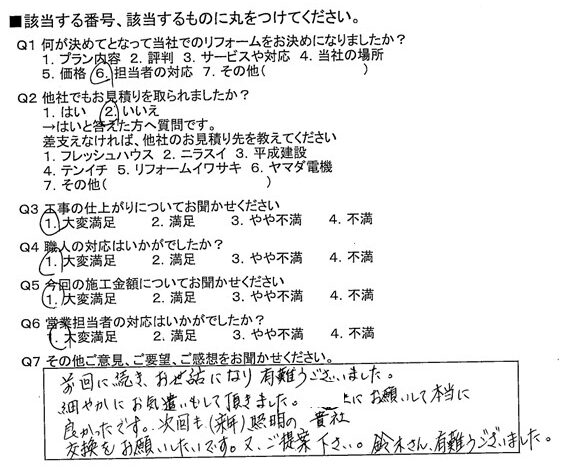 ■該当する番号、該当するものに丸をつけてください。
Q1 何が決めてとなって当社でのリフォームをお決めになりましたか？
1. プラン内容 2. 評判 3. サービスや対応 4. 当社の場所
5. 価格 6. 担当者の対応 7. その他( )
Q2 他社でもお見積りを取られましたか？
1. はい 2. いいえ
→はいと答えた方へ質問です。
差支えなければ、他社のお見積り先を教えてください
1. フレッシュハウス 2. ニラスイ 3. 平成建設
4. テンイチ 5. リフォームイワサキ 6. ヤマダ電機
7. その他( )
Q3 工事の仕上がりについてお聞かせください
1. 大変満足 2. 満足 3. やや不満 4. 不満
Q4 職人の対応はいかがでしたか？
1. 大変満足 2. 満足 3. やや不満 4. 不満
Q5 今回の施工金額についてお聞かせください
1. 大変満足 2. 満足 3. やや不満 4. 不満
Q6 営業担当者の対応はいかがでしたか？
1. 大変満足 2. 満足 3. やや不満 4. 不満
Q7 その他ご意見、ご要望、ご感想をお聞かせください。
前回に続き、お世話になり有難うございました。
細やかにお気遣いもして頂きました。 にお願いして本当に
良かったです。次回も(来年)照明の 貴社
交換をお願いしたいです。又、ご提案下さい。鈴木さん、有難うございました。